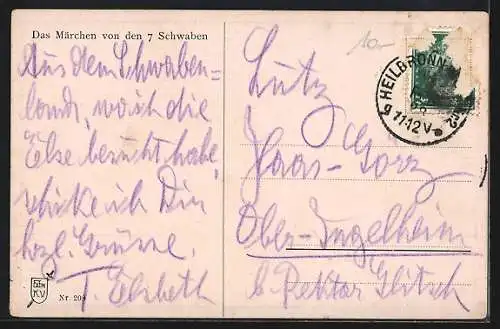 Das Märchen von den 7 Schwaben
Aus dem Schwaben-
lande, wo ich die
Else besucht habe,
schicke ich Dir
hzl. Grüsse.
T. Elsbeth
Nr. 208
10.-
HEILBRONN
11-12 V
Lutz
Haas-
Ober-Ingelheim
b. Rektor